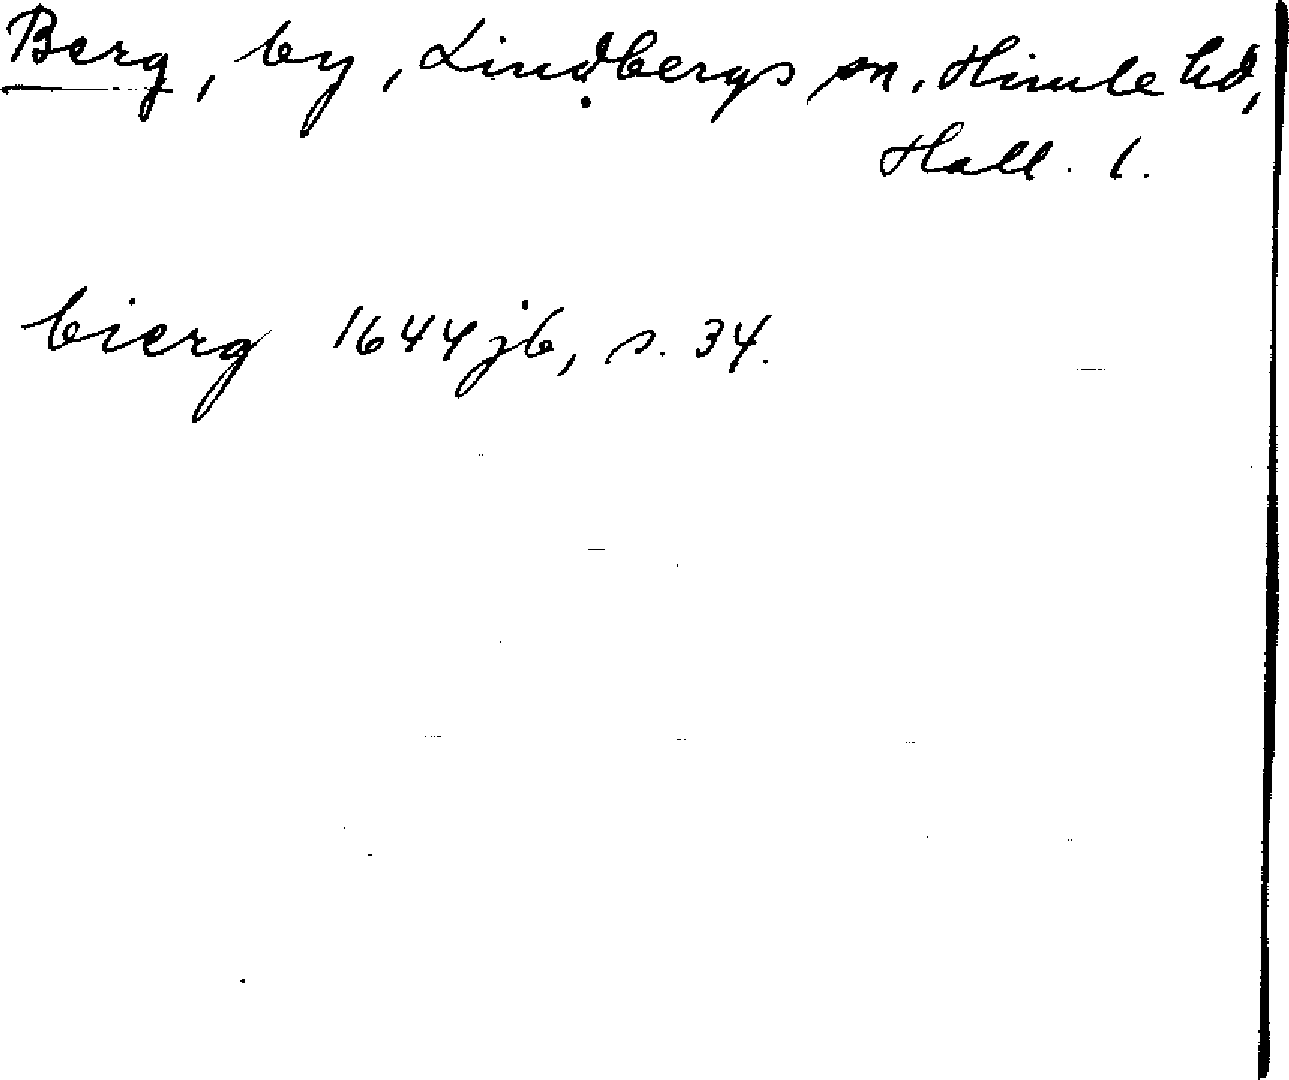 Berg, by, Lindbergs sn, Himle hd,
Hall. l.
bierg 1644 jb, s. 34.